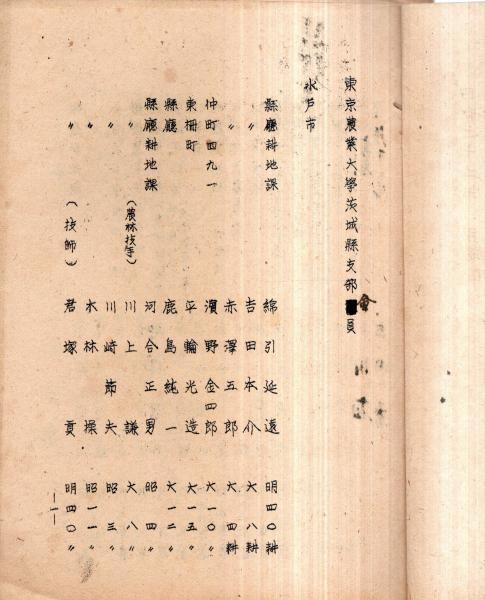 東京農業大學茨城縣支部會員
水戸市
縣廳耕地課 綿引延遠 明四〇耕
〃 吉田本介 大八耕
〃 赤澤五郎 大四耕
仲町四九一 濱野金四郎 大一〇〃
東柵町 平輪光造 大一五〃
縣廳 鹿島純一 大一二〃
縣廳耕地課 河合正男 昭四〃
〃(農林技手) 川上謙 大八〃
〃 川崎節夫 昭三〃
〃 木林操 昭一一〃
〃(技師) 君塚貢 明四〇〃
—1—